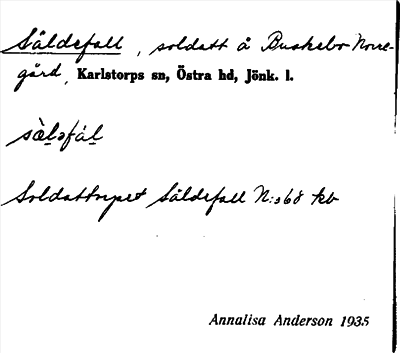 Säldefall, soldatt å Buskebo Norre-
gård, Karlstorps sn, Östra hd, Jönk. l.
sæ̀ləfál
Soldattorpet Säldefall N:o 68 kb
Annalisa Anderson 1935